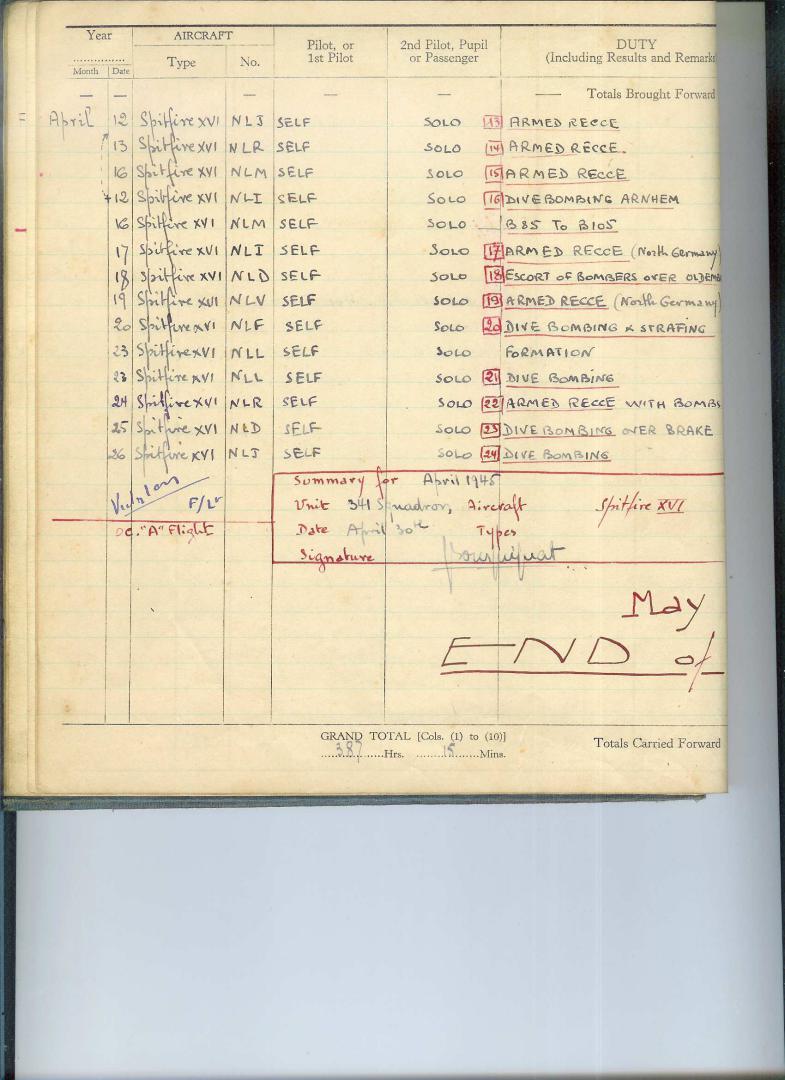 Year AIRCRAFT Pilot, or 1st Pilot 2nd Pilot, Pupil or Passenger DUTY (Including Results and Remark
Month Date Type No.
— — — — — — — Totals Brought Forward
April 12 Spitfire XVI NLJ SELF SOLO 13 ARMED RECCE
13 Spitfire XVI NLR SELF SOLO 14 ARMED RECCE.
16 Spitfire XVI NLM SELF SOLO 15 ARMED RECCE
+12 Spitfire XVI NLI SELF SOLO 16 DIVEBOMBING ARNHEM
16 Spitfire XVI NLM SELF SOLO B85 TO B105
17 Spitfire XVI NLI SELF SOLO 17 ARMED RECCE (North Germany)
18 Spitfire XVI NLD SELF SOLO 18 ESCORT OF BOMBERS OVER OLDEMB
19 Spitfire XVI NLV SELF SOLO 19 ARMED RECCE (North Germany)
20 Spitfire XVI NLF SELF SOLO 20 DIVE BOMBING & STRAFING
23 Spitfire XVI NLL SELF SOLO FORMATION
23 Spitfire XVI NLL SELF SOLO 21 DIVE BOMBING
24 Spitfire XVI NLR SELF SOLO 22 ARMED RECCE WITH BOMBS
25 Spitfire XVI NLD SELF SOLO 23 DIVE BOMBING OVER BRAKE
26 Spitfire XVI NLJ SELF SOLO 24 DIVE BOMBING
F/Lt
OC. "A" Flight
Summary for April 1945
Unit 341 Squadron, Aircraft Spitfire XVI
Date April 30th Types
Signature
May
END of
GRAND TOTAL [Cols. (1) to (10)] Totals Carried Forward
387 Hrs. 15 Mins.